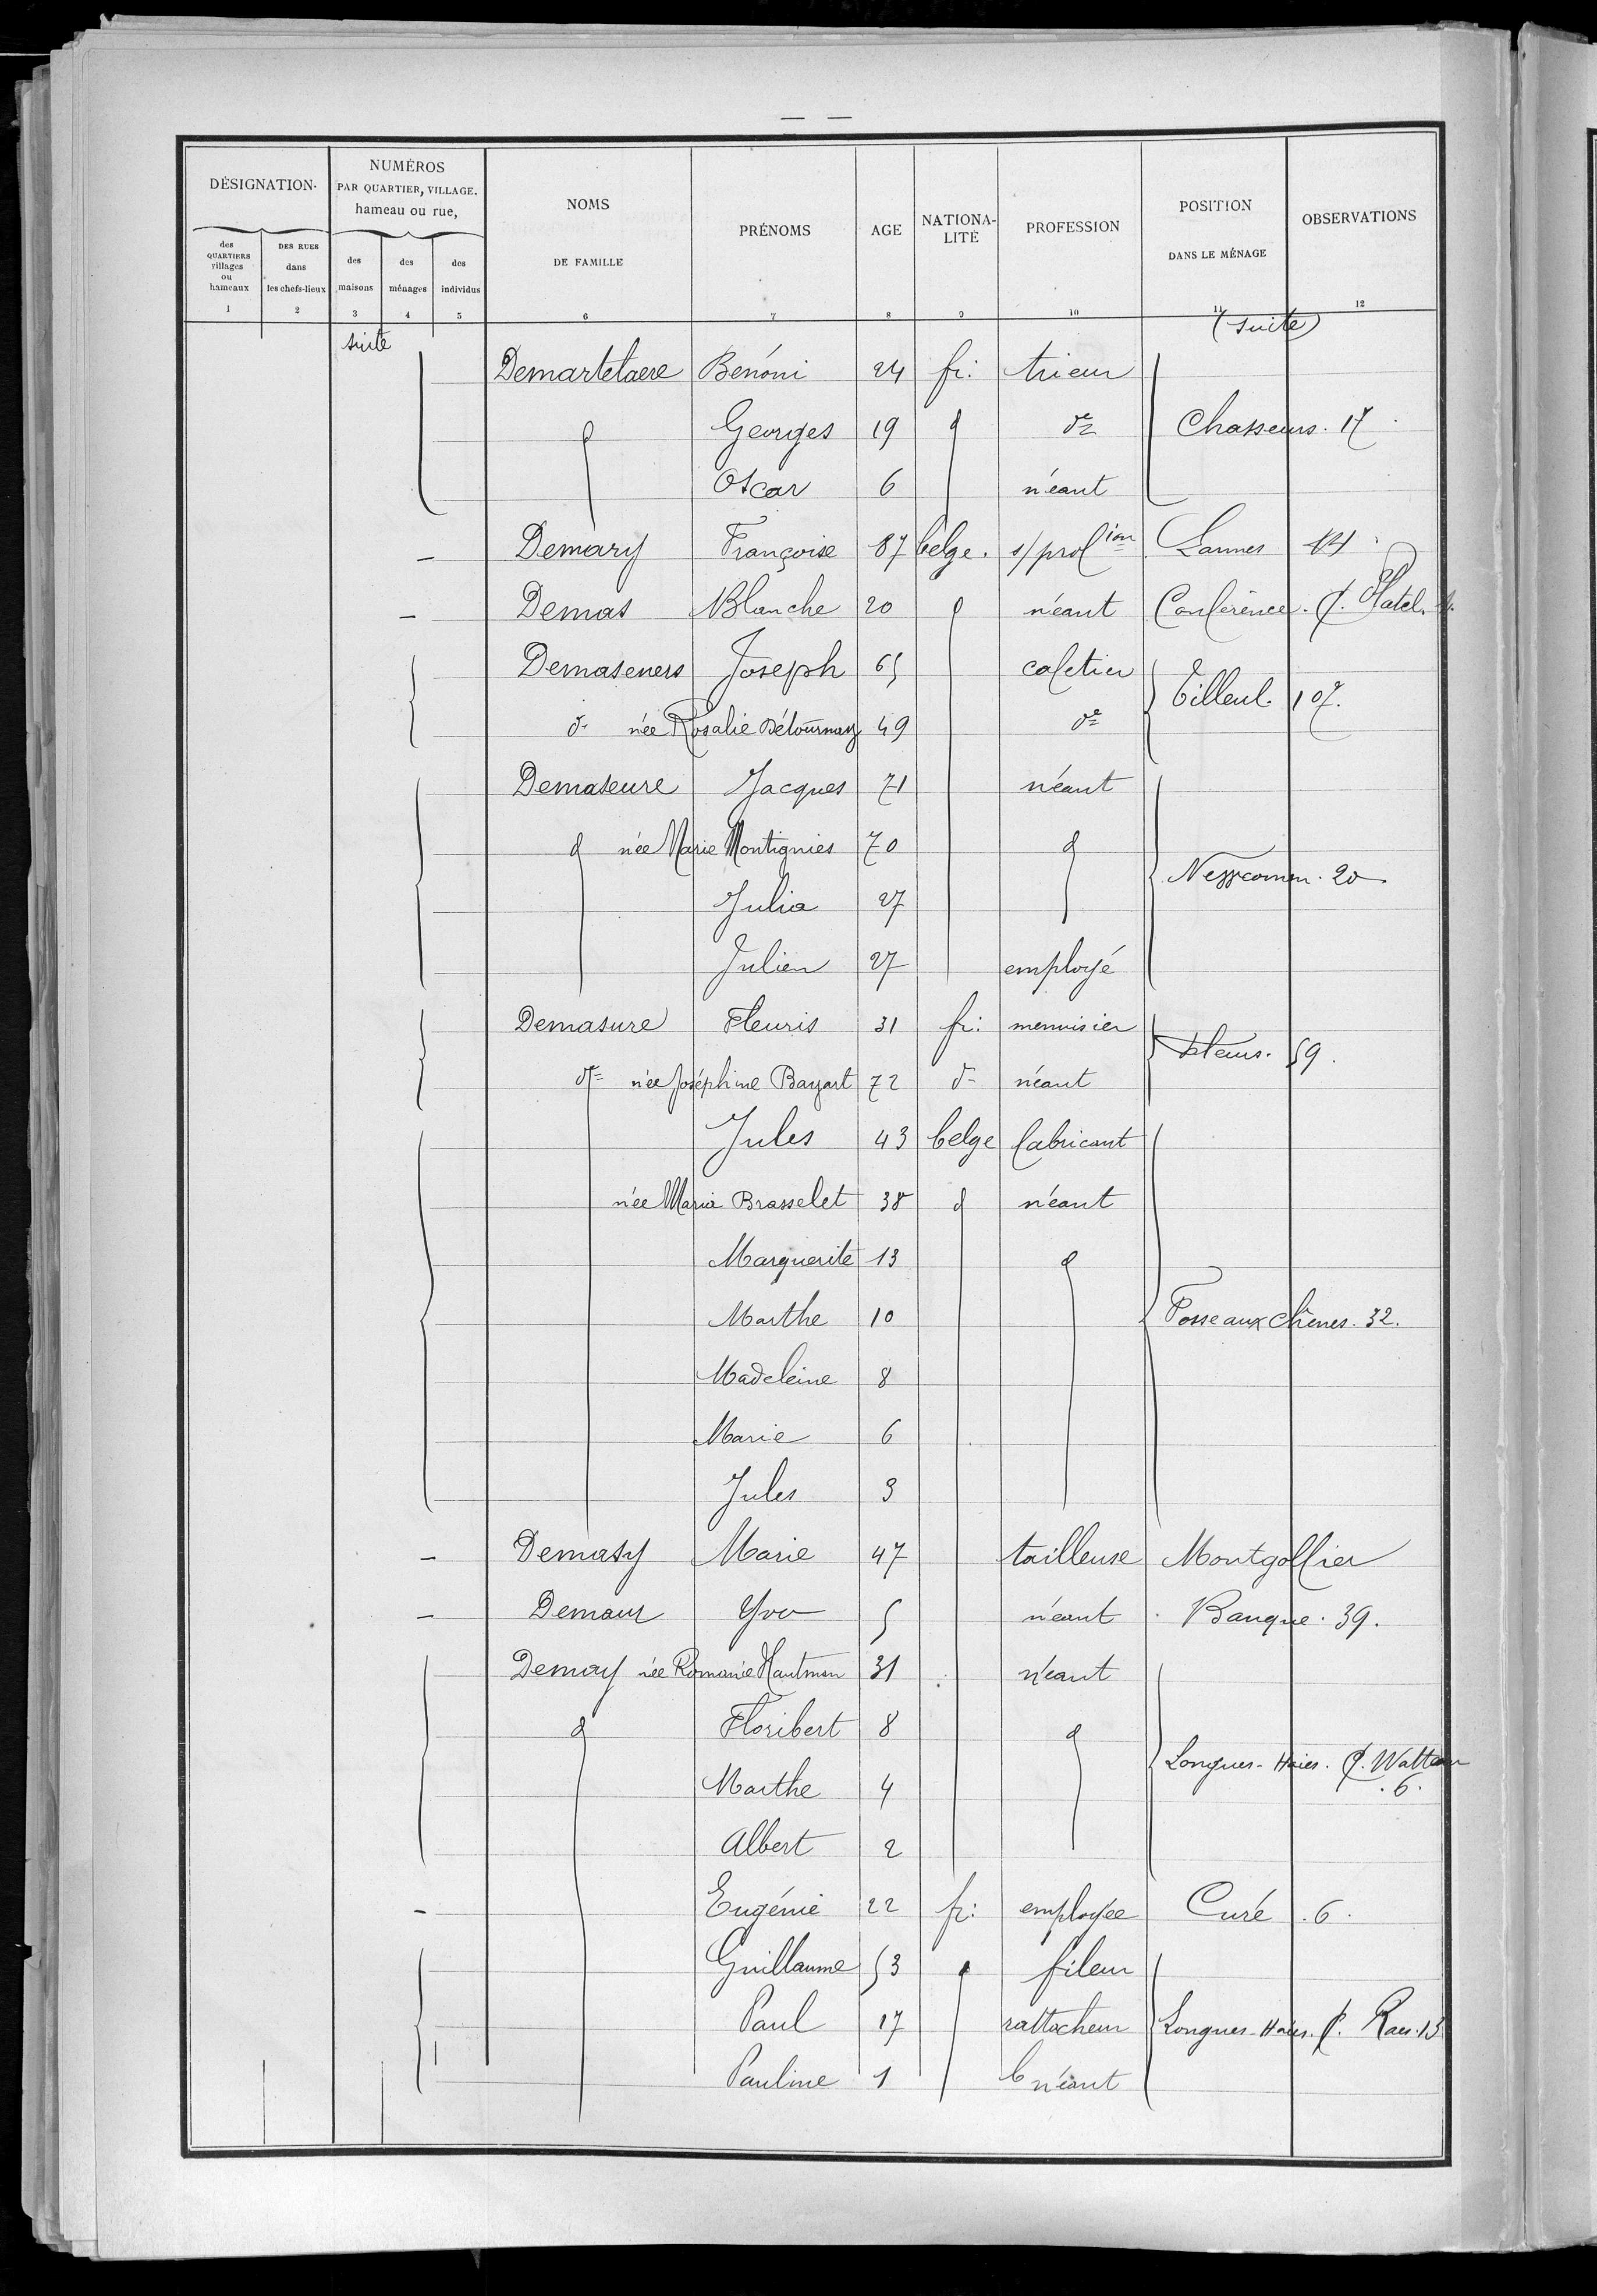 DÉSIGNATION.
NUMÉROS
PAR QUARTIER, VILLAGE.
hameau ou rue,
NOMS
DE FAMILLE
PRÉNOMS
AGE
NATIONA-
LITÉ
PROFESSION
POSITION
DANS LE MÉNAGE
OBSERVATIONS
des
QUARTIERS
villages
ou
hameaux
DES RUES
dans
les chefs-lieux
des
maisons
des
ménages
des
individus
1 2 3 4 5 6 7 8 9 10 11 12
suite (suite)
Demartelaere Bénoni 24 fr: trieur
d Georges 19 d de Chasseurs. 17
Oscar 6 néant
Demary Françoise 87 belge. s/profion Lannes 14
Demas Blanche 20 d néant Conférence. c. Platel.
Demaseners Joseph 65 cafetier
d- née Rosalie Détournay 49 de Tilleul. 107.
Demaseure Jacques 71 néant
d née Marie Montignies 70 d
Julia 27 20
Julien 27 employé
Demasure Fleuris 31 fr: menuisier
d= née Joséphine Bayart 72 d- néant Fleurs. 59.
Jules 43 belge fabricant
née Maria Brasselet 38 d néant
Marguerite 13 d
Marthe 10 Fosse aux Chênes. 32.
Madeleine 8
Marie 6
Jules 3
Demasy Marie 47 tailleuse Montgolfier
Demaux Yvo 5 néant Banque. 39.
Demay née Romanie Hautman 31 néant
d Floribert 8 d
Longues-Haies. c. Watteau
Marthe 4 .6.
Albert 2
Eugénie 22 fr: employée Curé .6.
Guillaume 53 fileur
Paul 17 rattacheur Longues-Haies. c. Raes. 13
Pauline 1 néant